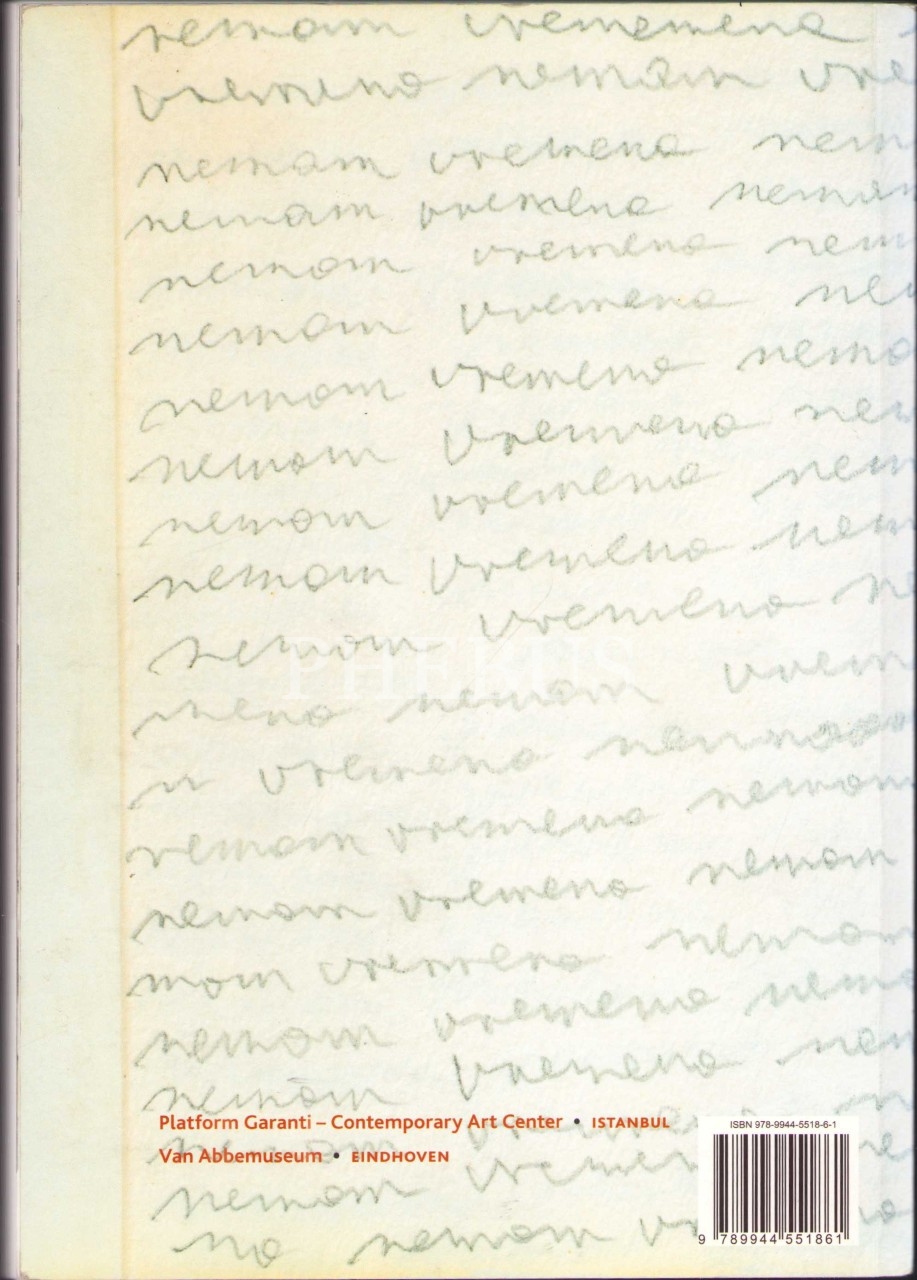 nemam vremenena
vremena nemam vre
nemam vremena nem
nemam vremena neman
nemam vremena nem
nemam vremena nei
nemam vremena nema
nemam vremena nen
nemam vremena nem
nemam vremena nem
nemam vremena ne
mena nemam vrem
m vremena
nemam vremena nemam
nemam vremena nemam
mam vremena nemam
nemam vremena nema
nemam vremena nem
PHEBUS
Platform Garanti – Contemporary Art Center • ISTANBUL
Van Abbemuseum • EINDHOVEN
nemam
na nemam
ISBN 978-9944-5518-6-1
9 789944 551861